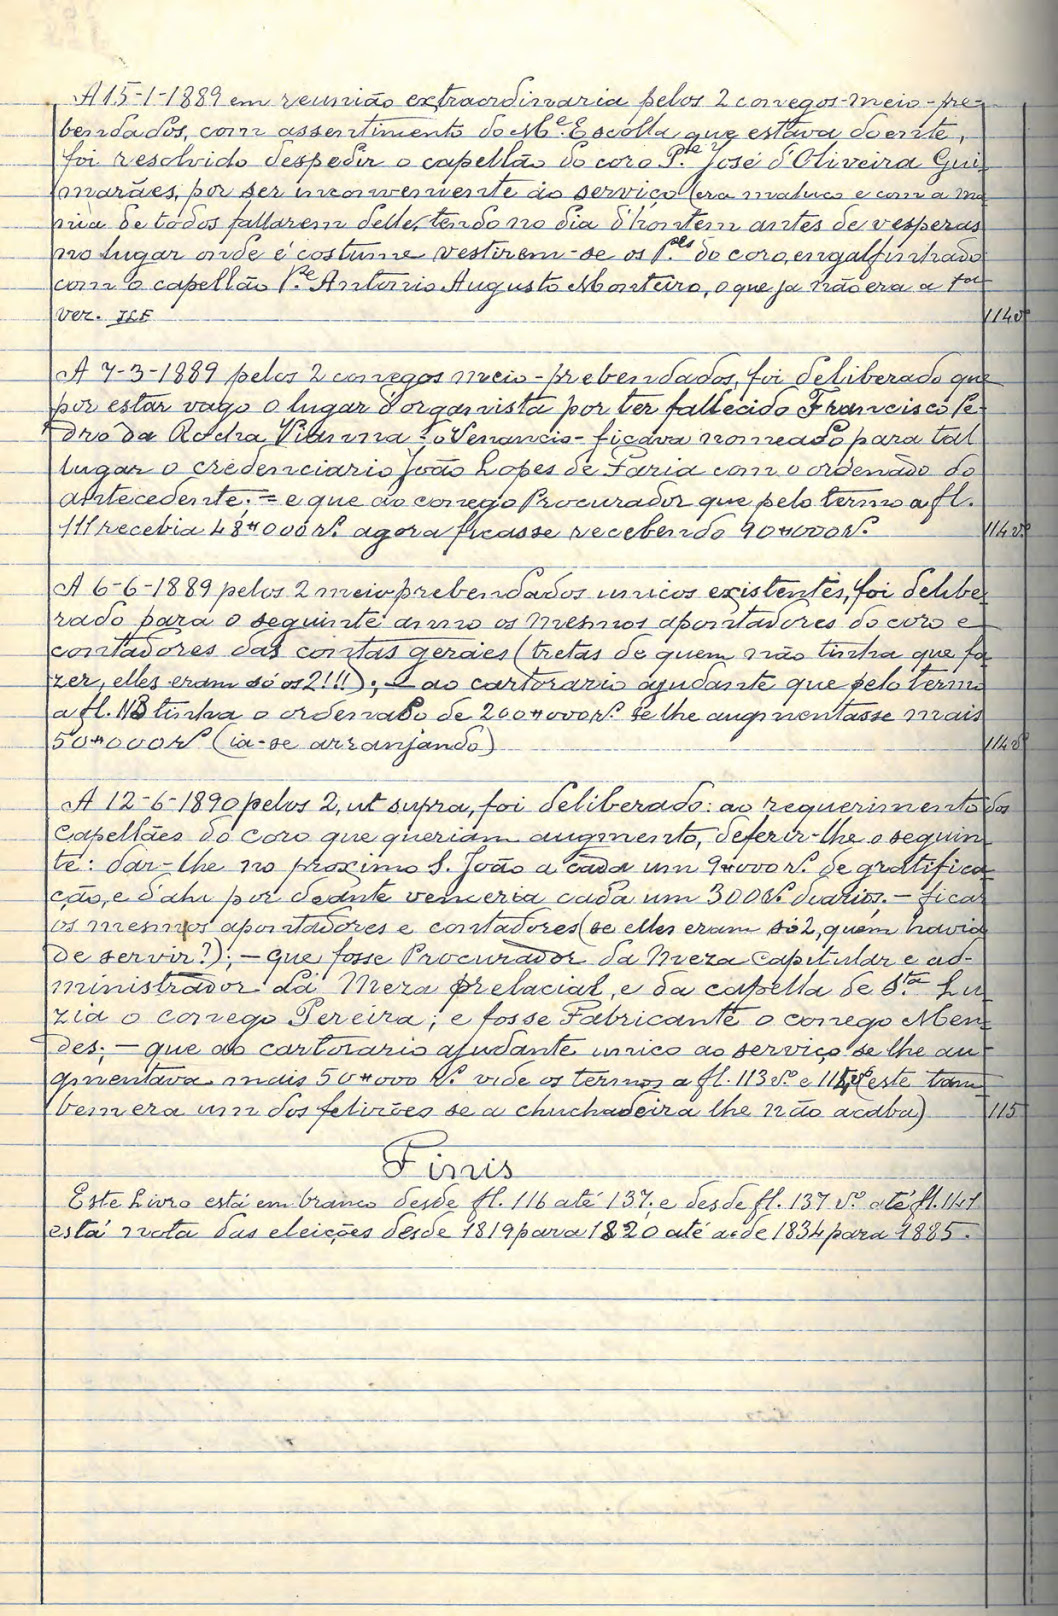 A 15-1-1889 em reunião extraordinaria pelos 2 conegos-meio-pre-
bendados, com assentimento do Me. Escolla que estava doente,
foi resolvido despedir o capellão do coro P.e José d'Oliveira Gui-
marães, por ser inconveniente ao serviço (era maluco e com a ma-
nia de todos fallarem delle, tendo no dia d'hontem antes de vesperas
no lugar onde é costume vestirem-se os P.es do coro, engalfinhado
com o capellão P.e Antonio Augusto Monteiro, o que ja não era a 1.a
vez. JLF 114v.º
A 7-3-1889 pelos 2 conegos meio-prebendados, foi deliberado que
por estar vago o lugar d'organista por ter fallecido Francisco Pe-
dro da Rocha Vianna - o Venancio - ficava nomeado para tal
lugar o credenciario João Lopes de Faria com o ordenado do
antecedente; = e que ao conego Procurador que pelo termo a fl.
111 recebia 48#000 rs. agora ficasse recebendo 90#000 rs. 114v.º
A 6-6-1889 pelos 2 meio-prebendados unicos existentes, foi delibe-
rado para o seguinte anno os mesmos apontadores do coro e
contadores das contas geraes (tretas de quem não tinha que fa-
zer, elles eram só os 2!!!); - ao cartorario ajudante que pelo termo
a fl. 113 tinha o ordenado de 200#000 rs. se lhe augmentasse mais
50#000 rs. (ia-se arranjando) 114v.º
A 12-6-1890 pelos 2, ut supra, foi deliberado: ao requerimento dos
capellães do coro que queriam augmento, deferir-lhe o seguin-
te: dar-lhe no proximo S. João a cada um 9#000 rs. de gratifica-
ção, e d'ahi por deante venceria cada um 300 rs. diarios. - ficar
os mesmos apontadores e contadores (se elles eram só 2, quem havia
de servir?); - que fosse Procurador da Meza Capitular e ad-
ministrador da Meza prelacial, e da capella de S.ta Lu-
zia o conego Pereira; e fosse Fabricante o conego Men-
des; - que ao cartorario ajudante unico ao serviço se lhe au-
gmentava mais 50#000 rs. vide os termos a fl. 113v.º e 114v.º (este tam-
bem era um dos felizões se a chuchadeira lhe não acaba) 115
Finis
Este Livro está em branco desde fl. 116 até 137; e desde fl. 137 v.º até fl. 141
está nota das eleições desde 1819 para 1820 até a de 1834 para 1885.